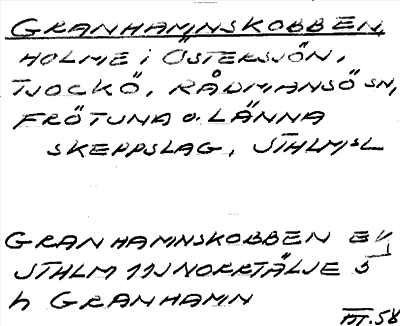 GRANHAMNSKOBBEN,
HOLME i ÖSTERSJÖN,
TJOCKÖ, RÅDMANSÖ SN,
FRÖTUNA o. LÄNNA
SKEPPSLAG, STHLMSL
GRANHAMNSKOBBEN EK
STHLM 11J NORRTÄLJE 5
h GRANHAMN